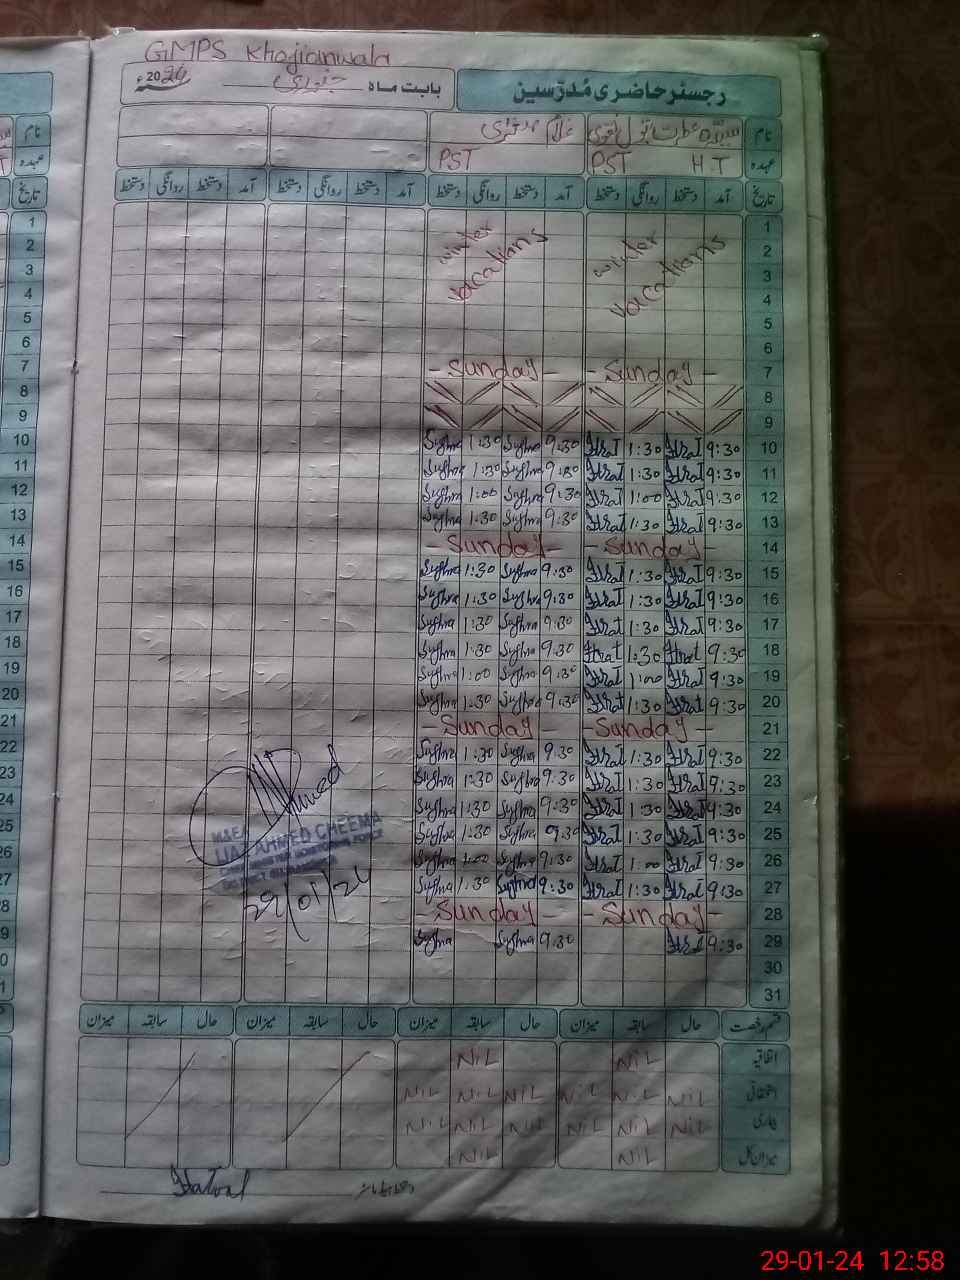 GMPS Khojianwala
رجسٹر حاضری مُدرّسین بابت ماہ جنوری 2024ء
نام سیدہ عطرت بتول نقوی غلام صغریٰ
عہدہ H.T PST PST
تاریخ آمد دستخط روانگی دستخط آمد دستخط روانگی دستخط آمد دستخط روانگی دستخط آمد دستخط روانگی دستخط
1 winter winter 1
2 vacations vacations 2
3 3
4 4
5 5
6 6
7 - Sunday - - Sunday - 7
8 8
9 9
10 Sughra 1:30 Sughra 9:30 Itrat 1:30 Itrat 9:30 10
11 Sughra 1:30 Sughra 9:30 Itrat 1:30 Itrat 9:30 11
12 Sughra 1:00 Sughra 9:30 Itrat 1:00 Itrat 9:30 12
13 Sughra 1:30 Sughra 9:30 Itrat 1:30 Itrat 9:30 13
14 - Sunday - - Sunday - 14
15 Sughra 1:30 Sughra 9:30 Itrat 1:30 Itrat 9:30 15
16 Sughra 1:30 Sughra 9:30 Itrat 1:30 Itrat 9:30 16
17 Sughra 1:30 Sughra 9:30 Itrat 1:30 Itrat 9:30 17
18 Sughra 1:30 Sughra 9:30 Itrat 1:30 Itrat 9:30 18
19 Sughra 1:00 Sughra 9:30 Itrat 1:00 Itrat 9:30 19
20 Sughra 1:30 Sughra 9:30 Itrat 1:30 Itrat 9:30 20
21 - Sunday - - Sunday - 21
22 Sughra 1:30 Sughra 9:30 Itrat 1:30 Itrat 9:30 22
23 Sughra 1:30 Sughra 9:30 Itrat 1:30 Itrat 9:30 23
24 Sughra 1:30 Sughra 9:30 Itrat 1:30 Itrat 9:30 24
25 Sughra 1:30 Sughra 9:30 Itrat 1:30 Itrat 9:30 25
26 Sughra 1:00 Sughra 9:30 Itrat 1:00 Itrat 9:30 26
27 Sughra 1:30 Sughra 9:30 Itrat 1:30 Itrat 9:30 27
28 - Sunday - - Sunday - 28
29 Sughra Sughra 9:30 Itrat 9:30 29
30 30
31 31
Ahmed
M&EA
AHMED CHEEMA
29/01/24
قسم رخصت حال سابقہ میزان حال سابقہ میزان حال سابقہ میزان حال سابقہ میزان
اتفاقیہ NiL NiL
استحقاقی NiL NiL NiL NiL NiL NiL
بیماری NiL NiL NiL NiL NiL NiL
میزان کل NiL NiL
دستخط ہیڈ ماسٹر
29-01-24 12:58